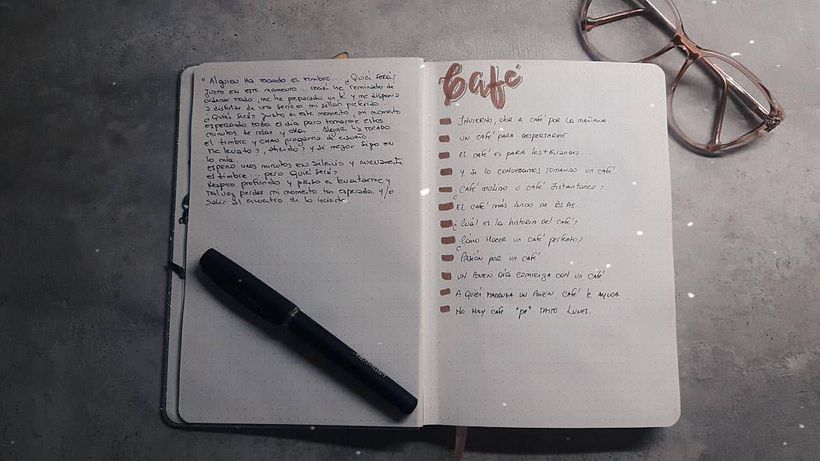 ° Alguien ha tocado el timbre... ¿Quién será?
Justo en este momento... recién he terminado de
ordenar todo, me he preparado un té y me disponía
a disfrutar de una serie en mi sillón preferido...
¿Quién será? Justo en este momento, un momento
esperado todo el día para tomarme estos
minutos de relax y ... Alguien ha tocado
el timbre y como programa de ensueño
me levanto?, atiendo? y si mejor sigo en
lo mío..
espero unos minutos en silencio y nuevamente
el timbre... pero Quién será?
Respiro profundo y pienso en levantarme y
tal vez perder mi momento tan esperado, y/o
salir al encuentro de lo incierto.
Café
Invierno, olor a café por la mañana.
Un café para despertarme
El café es para los tristes...
Y si lo conversamos tomando un café
Café molido o café instantáneo?
El café más lindo de BS.AS...
¿Cuál es la historia del café?
¿Cómo hacer un café perfecto?
Pasión por un café
Un buen día comienza con un café
A quién madruga un buen café le ayuda
No hay café "pa" tanto lunes.